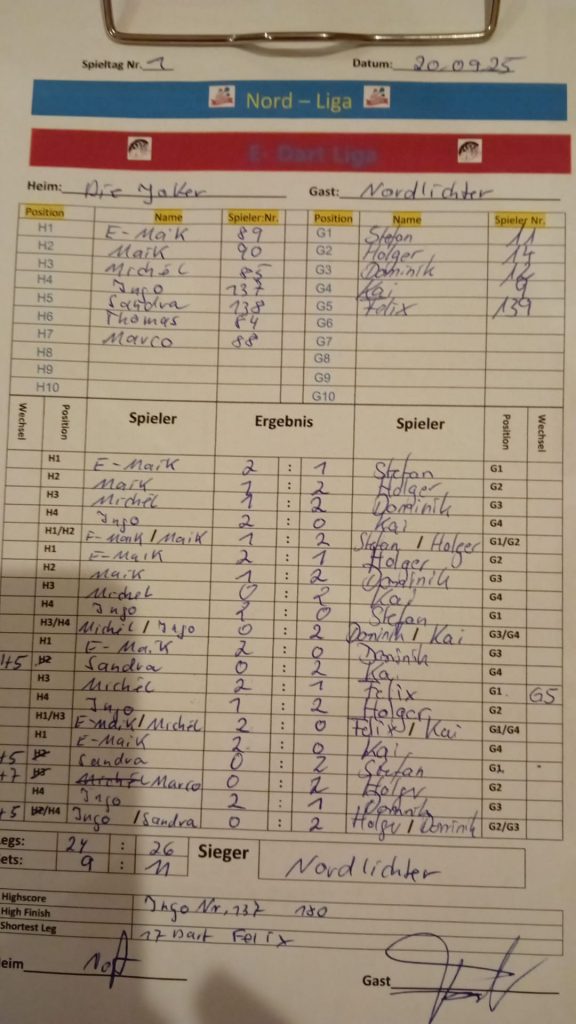 Spieltag Nr. 1 Datum: 20.09.25
Nord – Liga
E- Dart Liga
Heim: Die Joker Gast: Nordlichter
Position Name Spieler:Nr. Position Name Spieler Nr.
H1 E-Maik 89 G1 Stefan 11
H2 Maik 90 G2 Holger 14
H3 Michél 85 G3 Dominik 12
H4 Ingo 137 G4 Kai 9
H5 Sandra 138 G5 Felix 139
H6 Thomas 84 G6
H7 Marco 88 G7
H8 G8
H9 G9
H10 G10
Wechsel Position Spieler Ergebnis Spieler Position Wechsel
H1 E-Maik 2 : 1 Stefan G1
H2 Maik 1 : 2 Holger G2
H3 Michél 1 : 2 Dominik G3
H4 Ingo 2 : 0 Kai G4
H1/H2 E-Maik / Maik 1 : 2 Stefan / Holger G1/G2
H1 E-Maik 2 : 1 Holger G2
H2 Maik 1 : 2 Dominik G3
H3 Michel 0 : 2 Kai G4
H4 Ingo 2 : 0 Stefan G1
H3/H4 Michél / Ingo 0 : 2 Dominik / Kai G3/G4
H1 E-Maik 2 : 0 Dominik G3
H5 H2 Sandra 0 : 2 Kai G4
H3 Michél 2 : 1 Felix G1 G5
H4 Ingo 1 : 2 Holger G2
H1/H3 E-Maik / Michél 2 : 0 Felix / Kai G1/G4
H1 E-Maik 2 : 0 Kai G4
+5 H2 Sandra 0 : 2 Stefan G1
+7 H3 Michél Marco 0 : 2 Holger G2
H4 Ingo 2 : 1 Dominik G3
+5 H2/H4 Ingo / Sandra 0 : 2 Holger / Dominik G2/G3
egs: 24 : 26 Sieger Nordlichter
ets: 9 : 11
Highscore Ingo Nr. 137 180
High Finish
Shortest Leg 17 Dart Felix
eim Gast